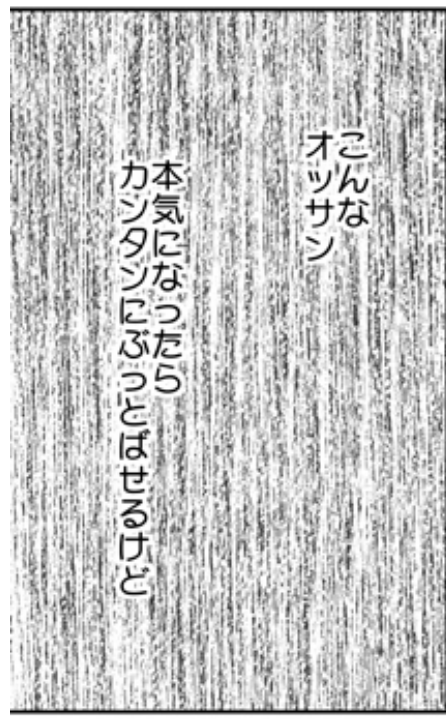 こんな
オッサン
本気になったら
カンタンにぶっとばせるけど